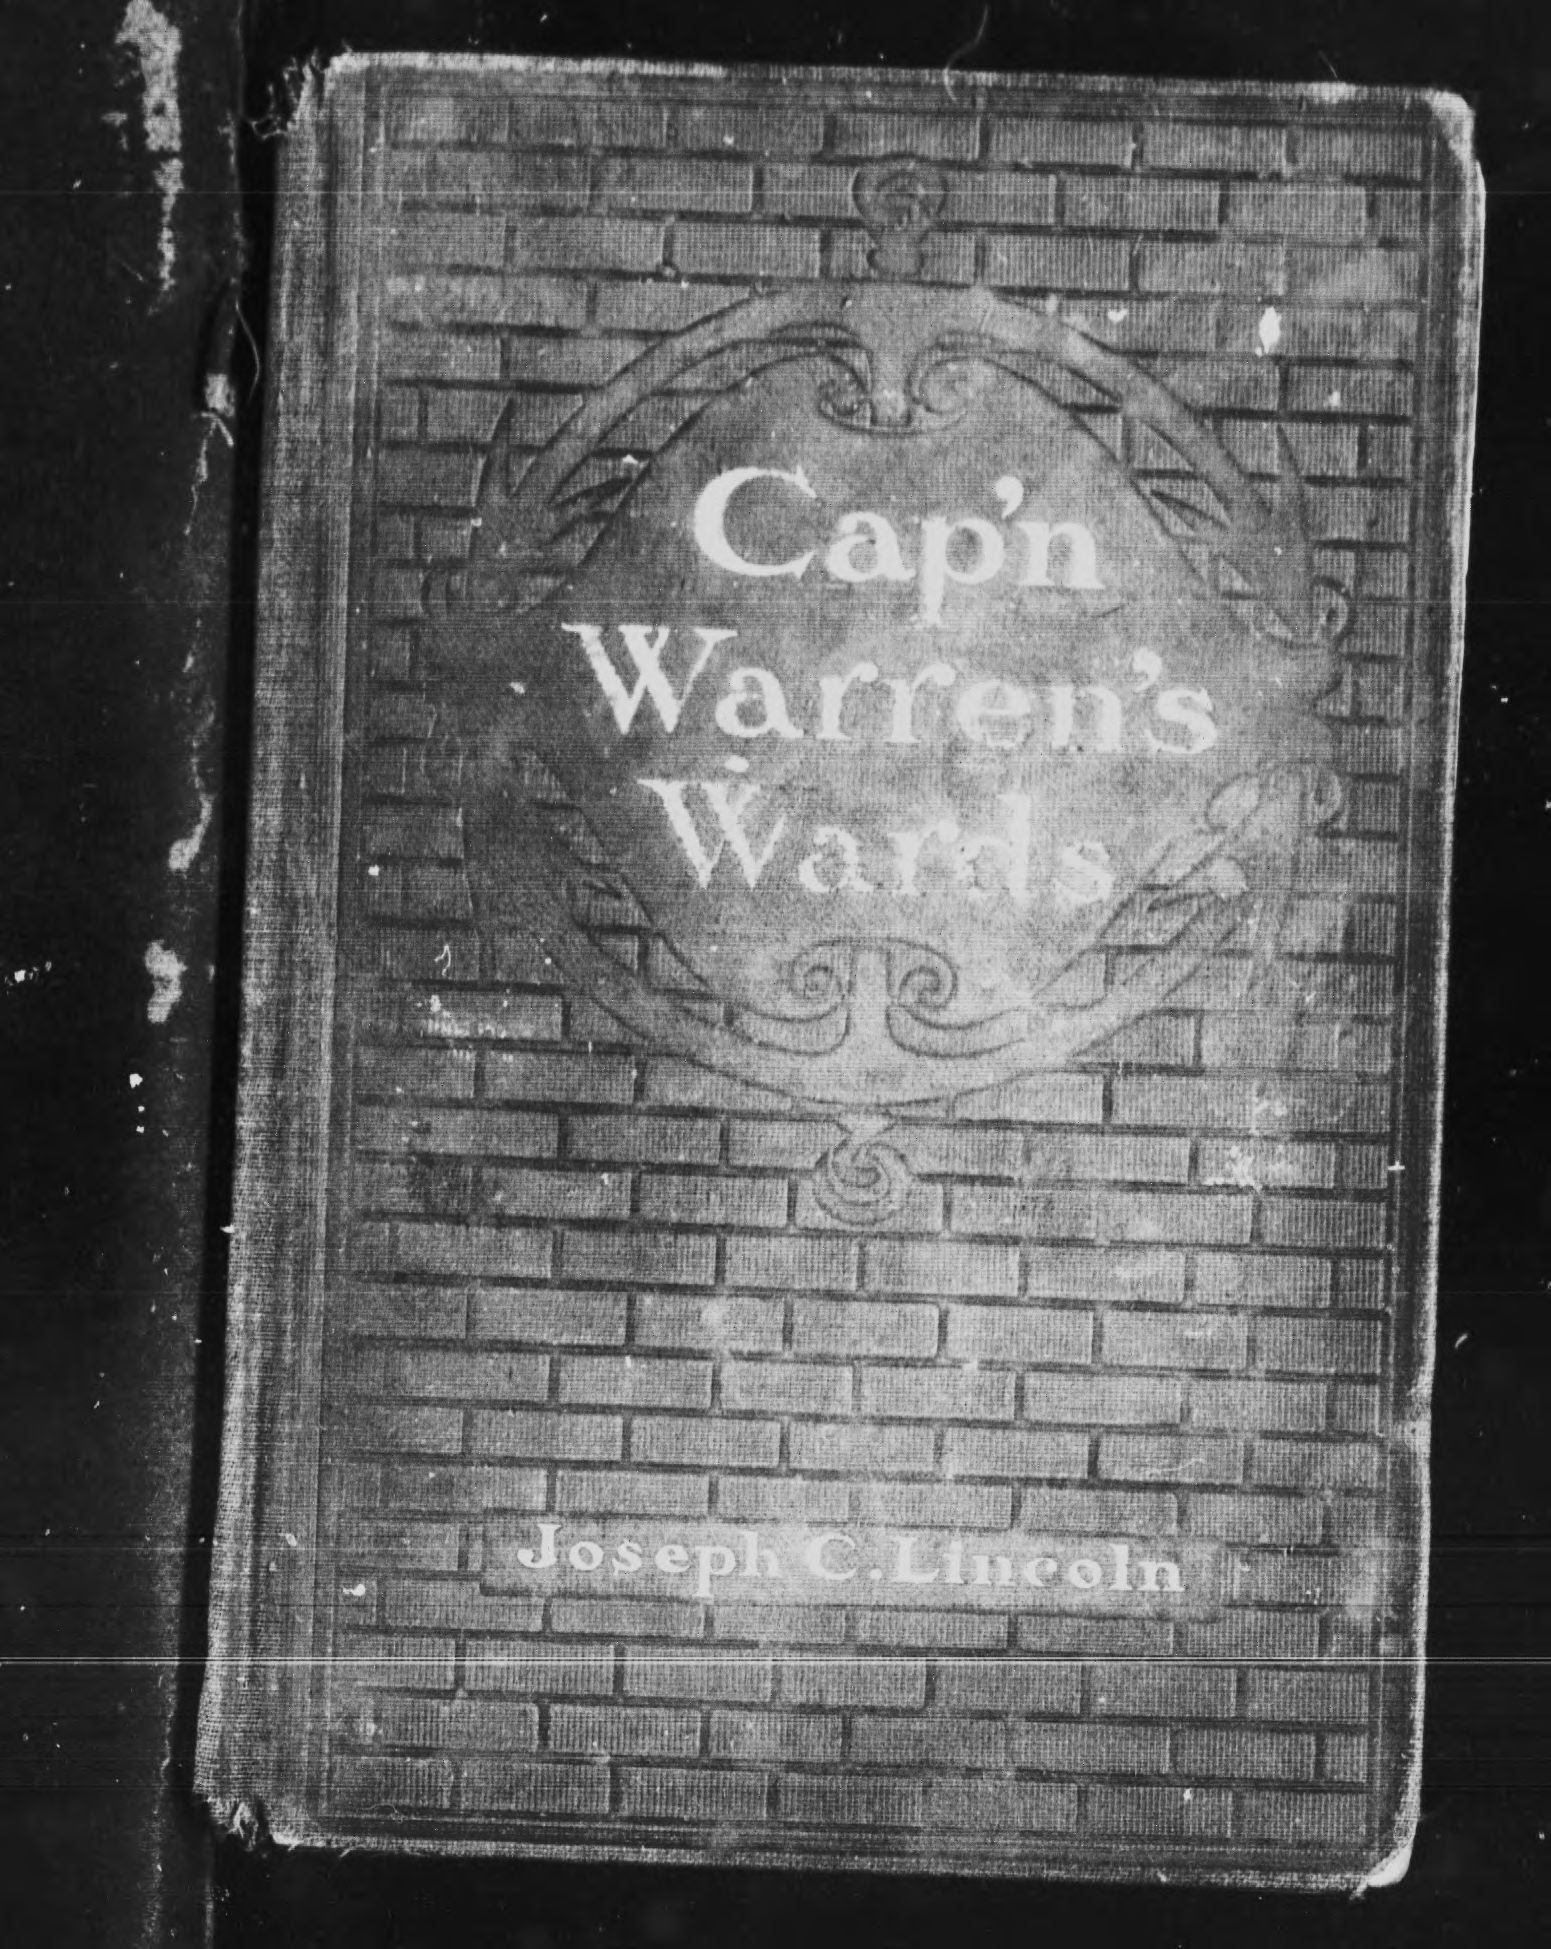 Cap'n
Warren's
Wards
Joseph C. Lincoln